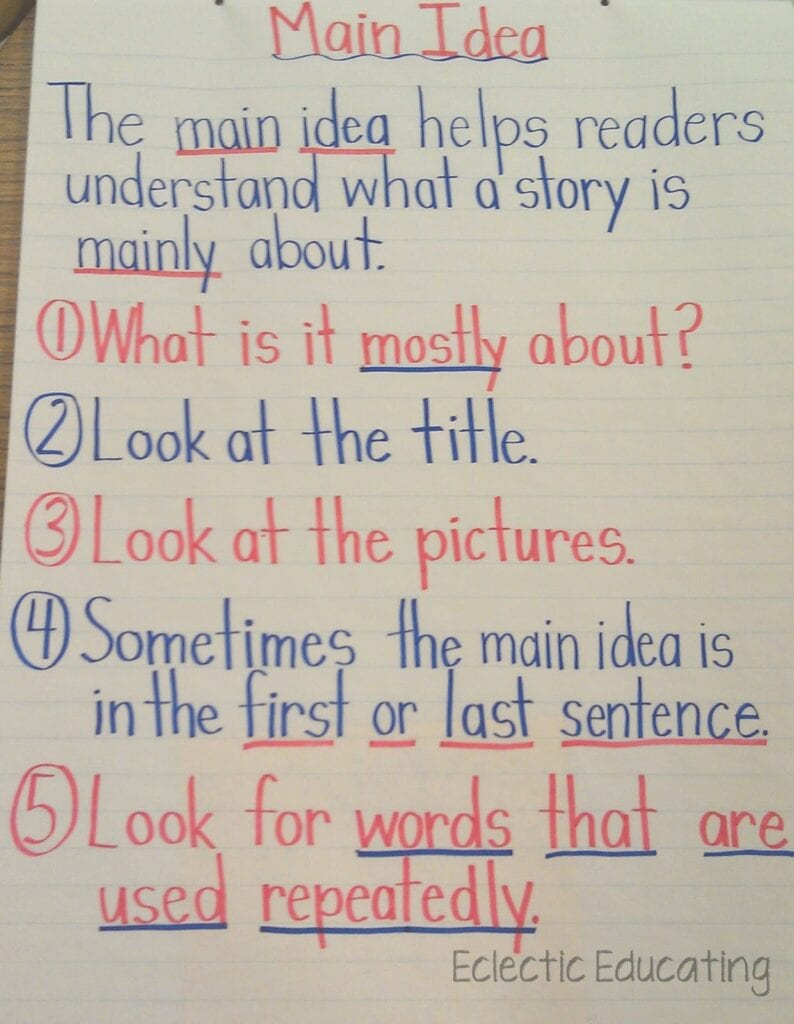 Main Idea
The main idea helps readers
understand what a story is
mainly about.
①What is it mostly about?
②Look at the title.
③Look at the pictures.
④Sometimes the main idea is
in the first or last sentence.
⑤Look for words that are
used repeatedly.
Eclectic Educating